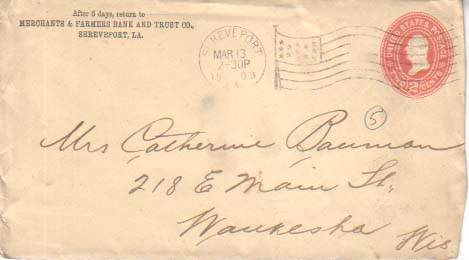 After 5 days, return to
MERCHANTS & FARMERS BANK AND TRUST CO.,
SHREVEPORT, LA.
SHREVEPORT
MAR 13
2-30P
1903
LA.
UNITED STATES POSTAGE
TWO 2 CENTS
5
Mrs Catherine Bauman
218 E Main St.,
Waukesha Wis